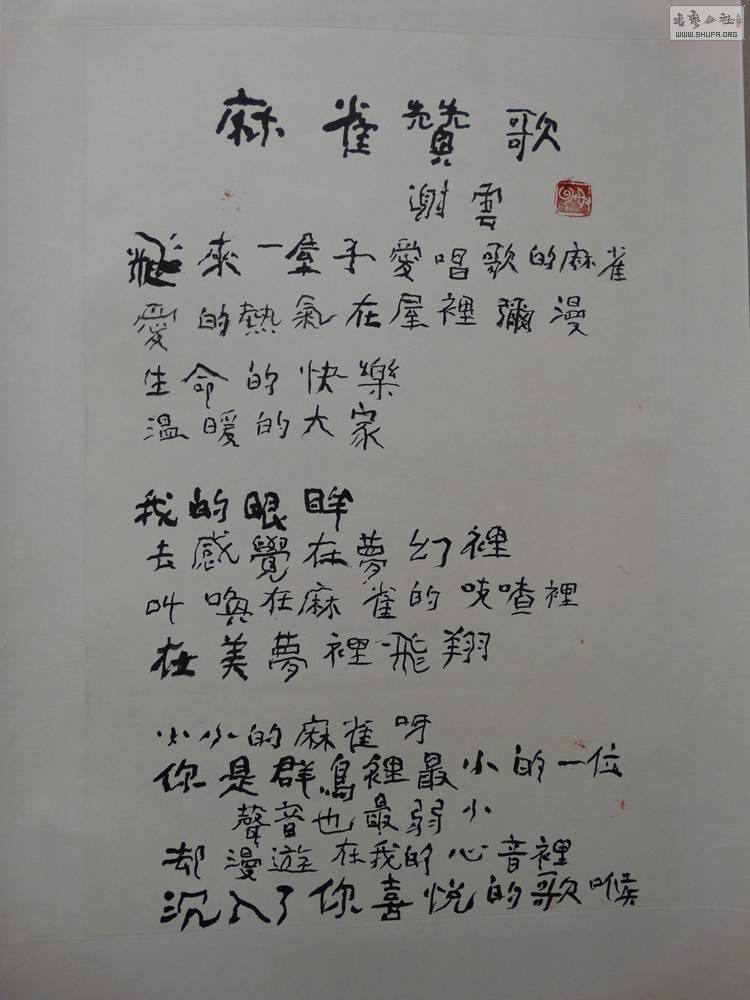 书艺公社
WWW.SHUFA.ORG
麻雀贊歌
謝雲
飛來一屋子愛唱歌的麻雀
愛的熱氣在屋裡彌漫
生命的快樂
溫暖的大家
我的眼眸
去感覺在夢幻裡
叫喚在麻雀的吱喳裡
在美夢裡飛翔
小小的麻雀呀
你是群鳥裡最小的一位
聲音也最弱小
却漫遊在我的心音裡
沉入了你喜悅的歌喉